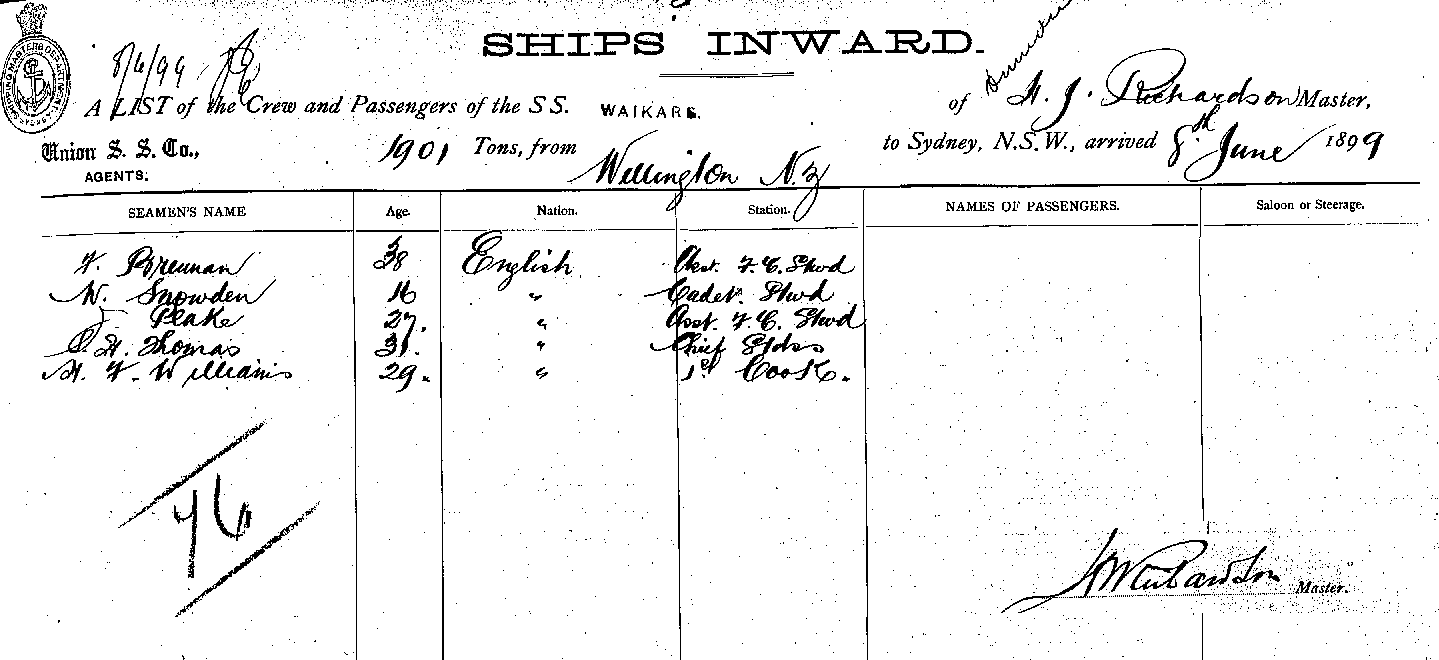 SHIPS INWARD.
8/6/99
A LIST of the Crew and Passengers of the S S. WAIKARE. of Dunedin H. J. Richardson Master,
Union S. S. Co., 1901 Tons, from Wellington N.Z to Sydney, N.S.W., arrived 8th June 1899
AGENTS.
SEAMEN'S NAME Age. Nation. Station. NAMES OF PASSENGERS. Saloon or Steerage.
F. Brennan 38 English Asst. F. C. Stwd
W. Snowden 16 " Cadet. Stwd
F Peake 27. " Asst. F. C. Stwd
H. Thomas 31. " Chief Stdss
H. F. Williams 29. " 1st Cook.
76
Master.